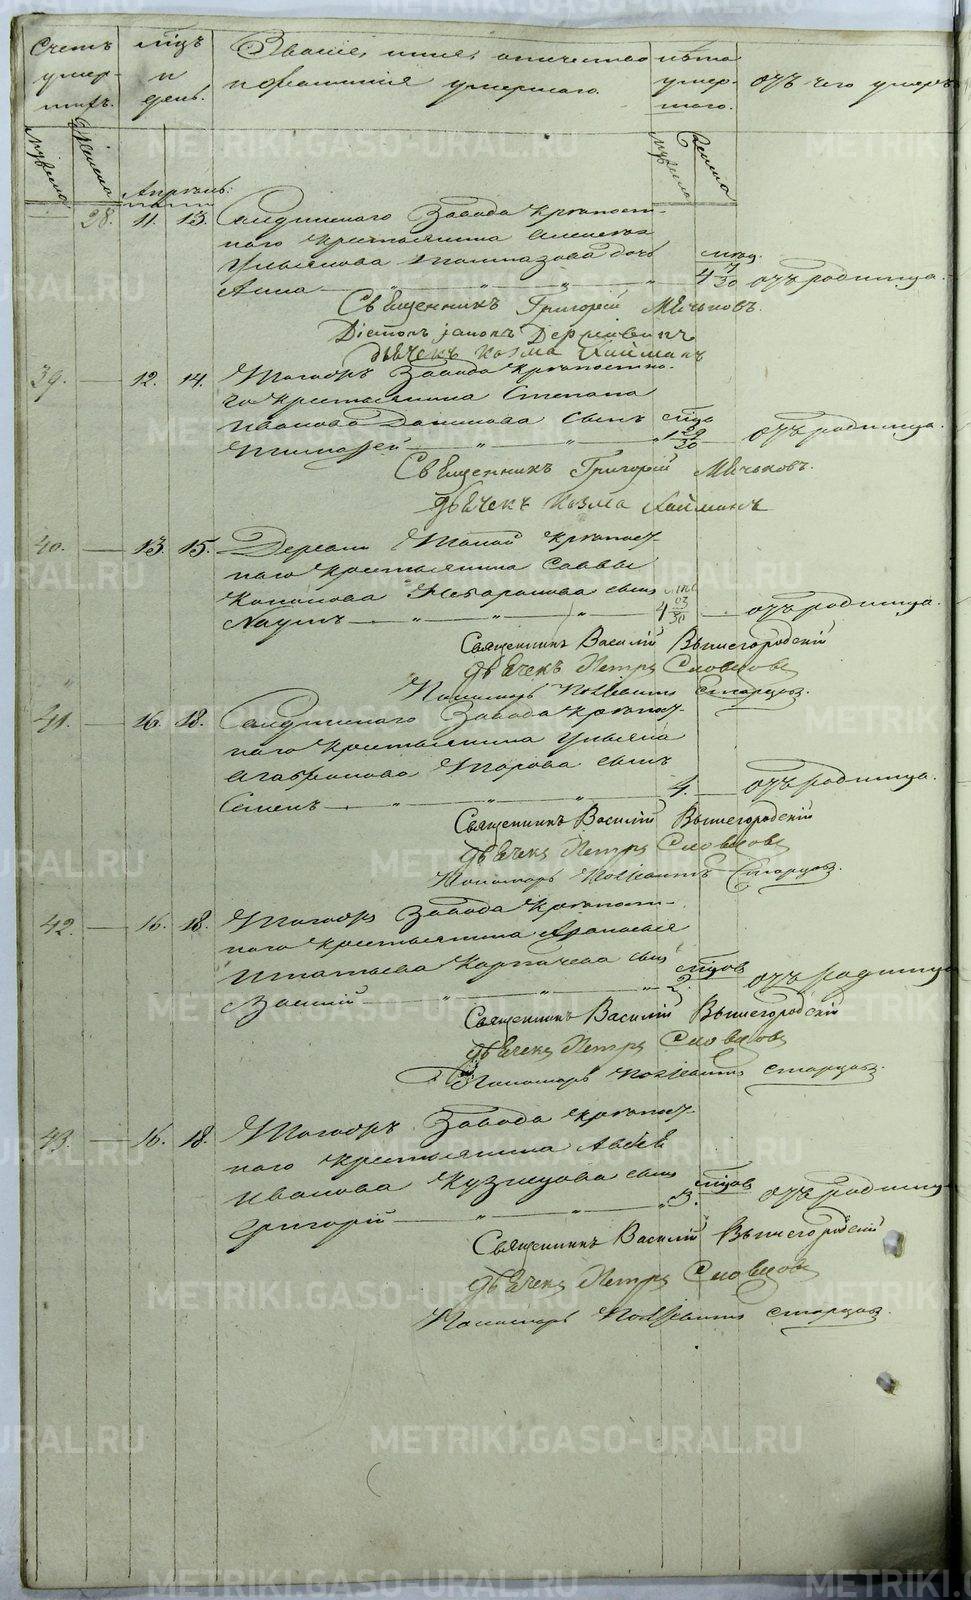 Счетъ умершихъ.
Мужеска
Женска
мцъ и день.
Званіе, имя, отечество и фамилія умершаго.
лѣта умершаго.
Мужеска
Женска
отъ чего умеръ
Апрѣль:
28. 11. 13. Салдинскаго Завода крѣпост-
наго крестьянина Алексѣя
Ульянова дочь
Анна — " — " — " 4 7/30 отъ родимца.
Священникъ Григорій Мѣчьковъ.
Діаконъ
Дьячекъ Козма
39. — 12. 14. Тогожъ Завода крѣпостна-
го крестьянина Степана
Иванова Данилова сынъ мцъ
Тимофей — " — " — " 1 29/30 — отъ родимца.
Священникъ Григорій Мѣчьковъ.
Дьячекъ Козма
40. — 13. 15. Деревни крѣпост-
наго крестьянина Саввы
Кононова сынъ мцъ
Наумъ — " — " — " 4 23/30 — отъ родимца.
Священникъ Василій Вышегородскій
Дьячекъ Петръ Словцовъ
Пономарь Старцовъ.
41. — 16. 18. Салдинскаго Завода крѣпост-
наго крестьянина Ульяна
Агафонова сынъ
Семенъ — " — " — " 4. — отъ родимца.
Священникъ Василій Вышегородскій
Дьячекъ Петръ Словцовъ
Пономарь Старцовъ.
42. — 16. 18. Тогожъ Завода крѣпост-
наго крестьянина Афанасья
Игнатьева Карпачева сынъ мцовъ
Василій — " — " — " 2. отъ родимца
Священникъ Василій Вышегородскій
Дьячекъ Петръ Словцовъ
Пономарь Старцовъ.
43. — 16. 18. Тогожъ Завода крѣпост-
наго крестьянина Авдѣя
Иванова Кузнецова сынъ мцовъ
Григорій — " — " — " 3. отъ родимца
Священникъ Василій Вышегородскій
Дьячекъ Петръ Словцовъ
Пономарь Старцовъ.
METRIKI.GASO-URAL.RU